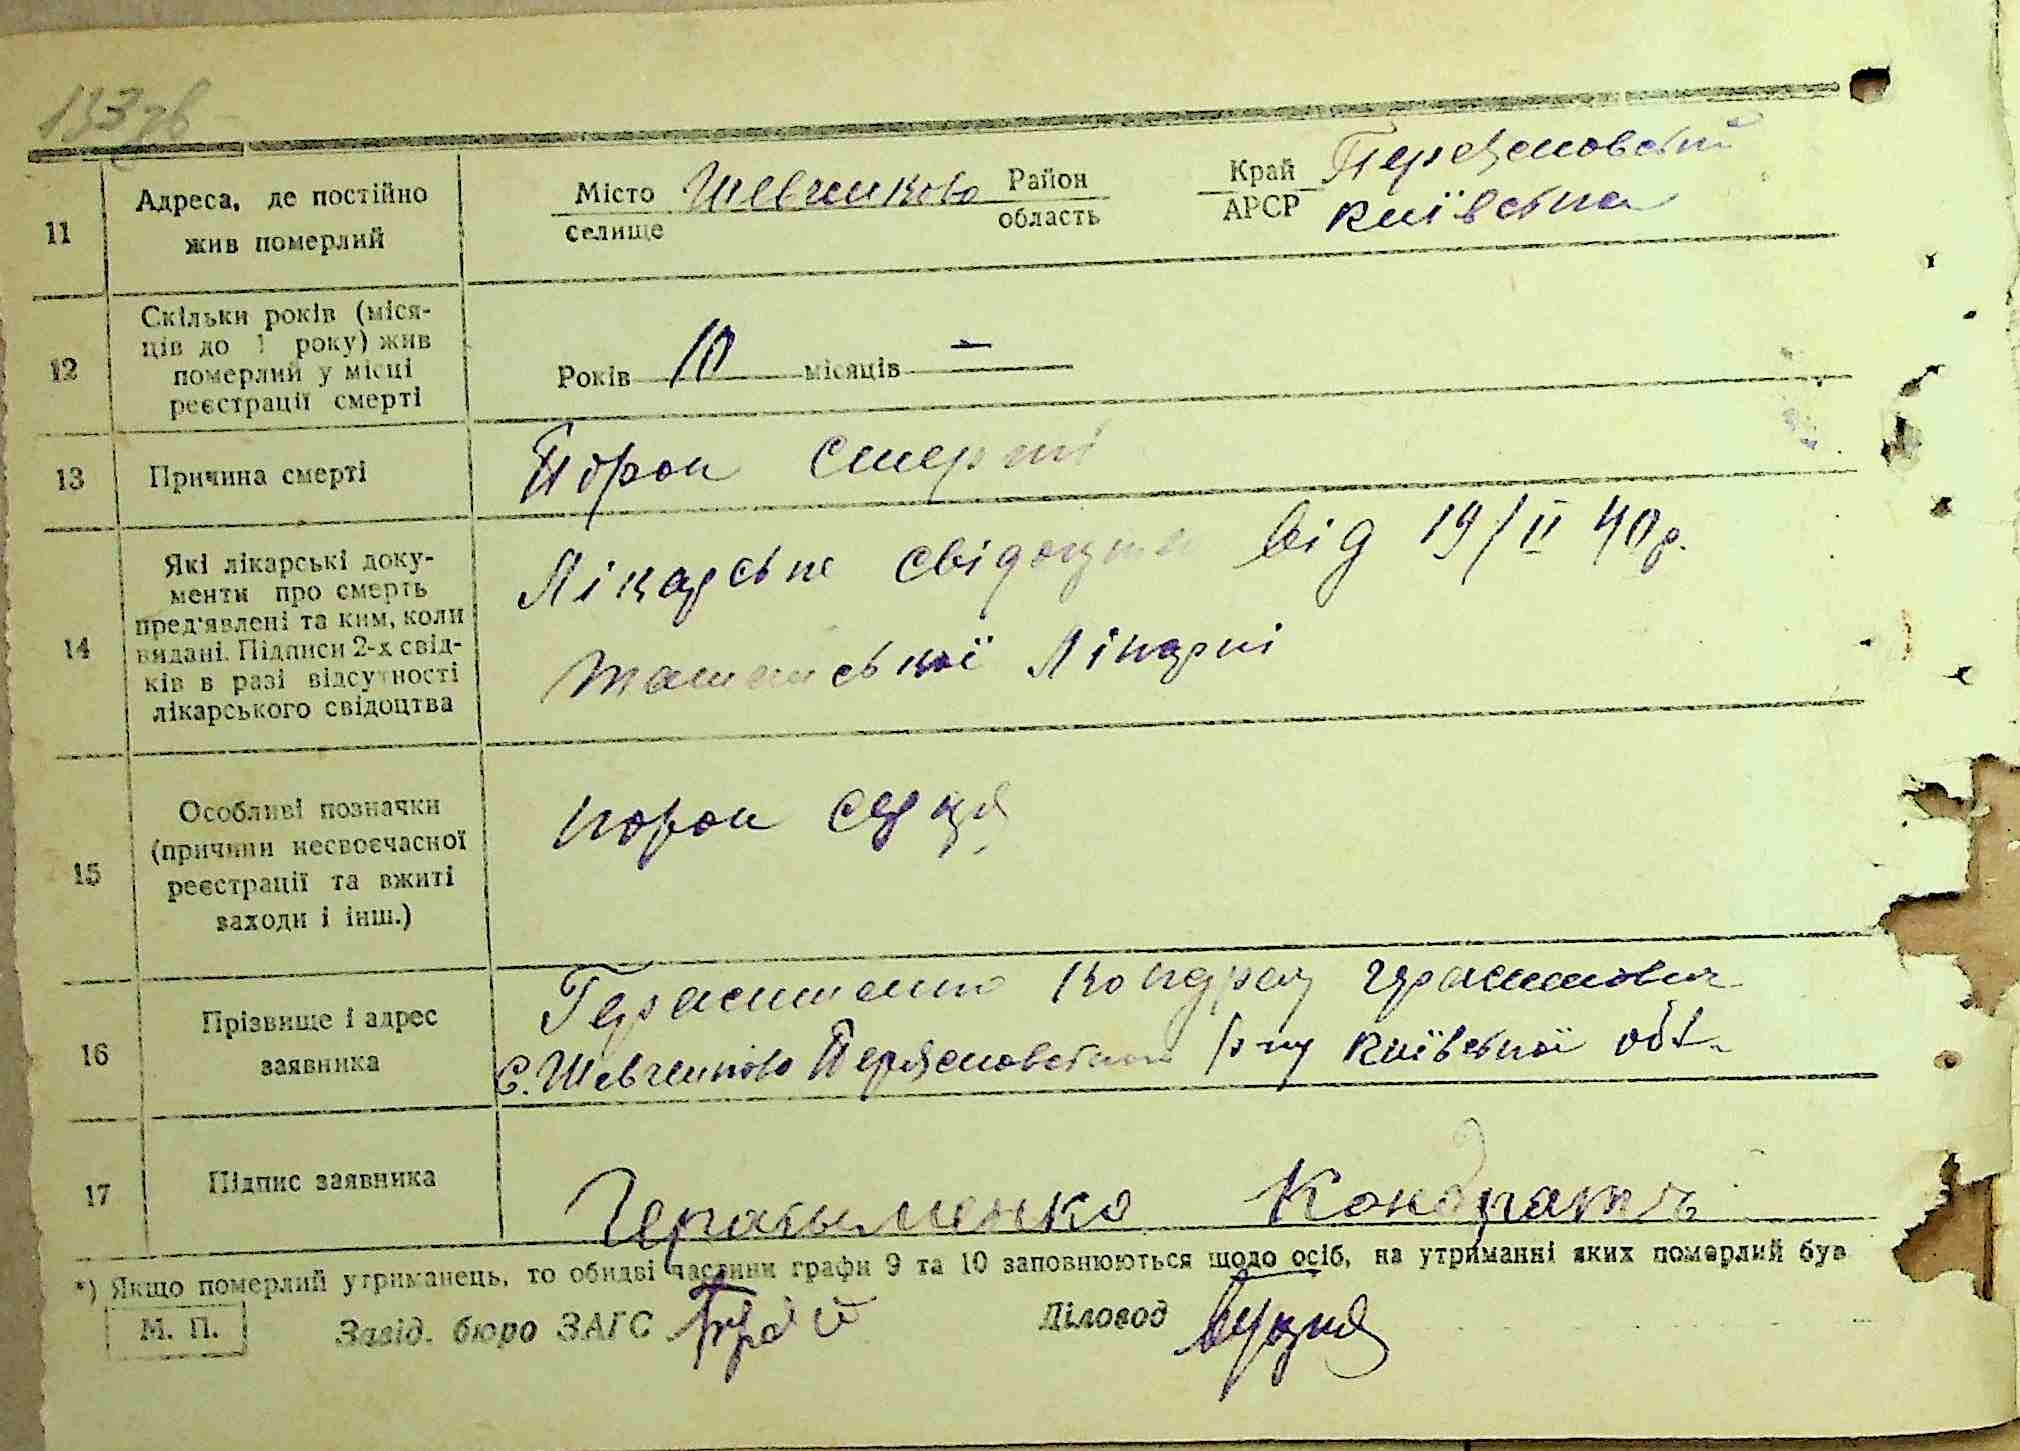 113 зв
11
Адреса, де постійно
жив померлий
Місто Шевченково Район Край Переяславський
селище область АРСР Київська
12
Скільки років (міся-
ців до 1 року) жив
померлий у місці
реєстрації смерті
Років 10 місяців —
13
Причина смерті
Порок смерті
14
Які лікарські доку-
менти про смерть
пред'явлені та ким, коли
видані. Підписи 2-х свід-
ків в разі відсутності
лікарського свідоцтва
Лікарське свідоцтво від 19/II 40р.
Ташанської Лікарні
15
Особливі позначки
(причини несвоєчасної
реєстрації та вжиті
заходи і інш.)
порок серця
16
Прізвище і адрес
заявника
Герасименко Кондрат Герасимович
с. Шевченково Переяславський р-ну Київської обл.
17
Підпис заявника
Герасыменко Кондрать
*) Якщо померлий утриманець, то обидві частини графи 9 та 10 заповнюються щодо осіб, на утриманні яких померлий був
М. П. Завід. бюро ЗАГС Діловод